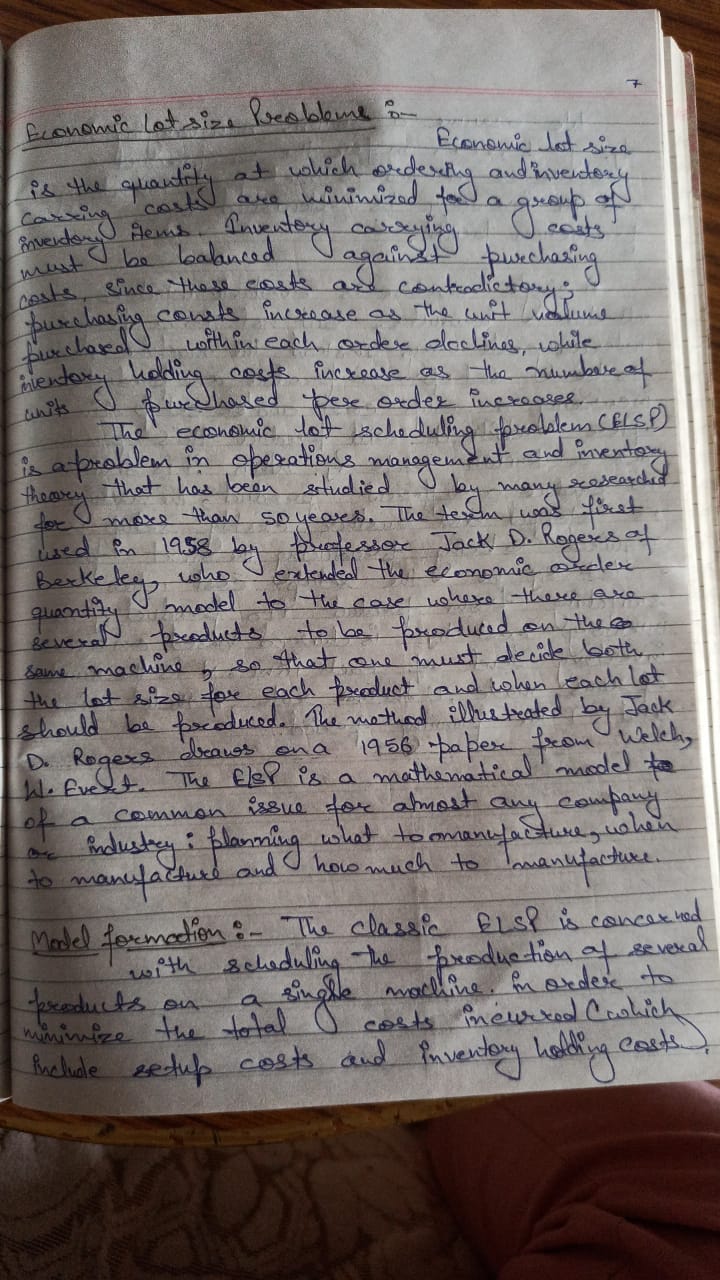 7
Economic Lot size Problems :-
Economic lot size
is the quantity at which ordering and inventory
carring costs are minimized for a group of
inventory items. Inventory carrying costs
must be balanced against purchasing
costs, since these costs are contradictory;
purchasing consts increase as the unit volume
purchased within each order declines, while
inventory holding costs increase as the number of
units purchased per order increases.
The economic lot scheduling problem (ELSP)
is a problem in operations management and inventory
theory that has been studied by many researched
for more than 50 years. The term was first
used in 1958 by professor Jack D. Rogers of
Berkeley, who extended the economic order
quantity model to the case where there are
several products to be produced on the
same machine, so that one must decide both
the lot size for each product and when each lot
should be produced. The method illustrated by Jack
D. Rogers draws on a 1956 paper from Welch,
W. Evert. The ELSP is a mathematical model
of a common issue for almost any company
or industry: planning what to manufacture, when
to manufacture and how much to manufacture.
Model formation :- The classic ELSP is concerned
with scheduling the production of several
products on a single machine. in order to
minimize the total costs incurred (which
include setup costs and inventory holding costs).